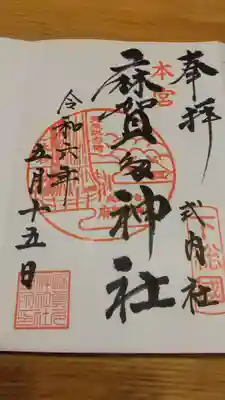 奉拝
式内社
本宮
麻賀多神社
令和六年
五月十五日